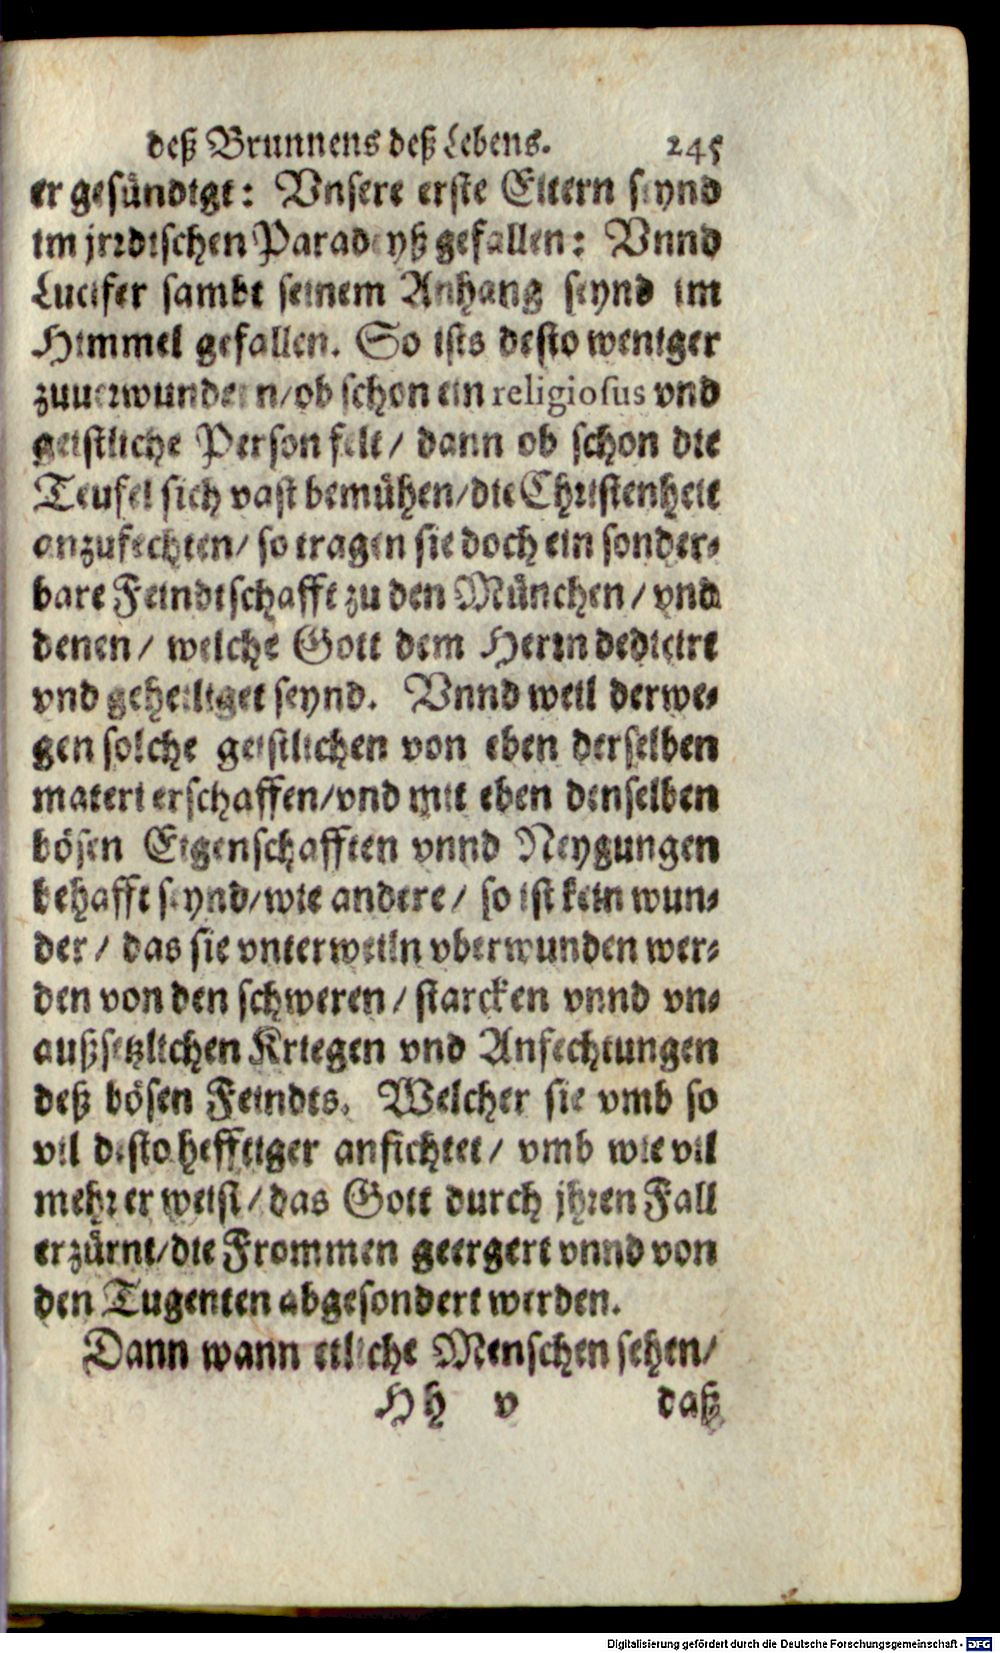 deß Brunnens deß Lebens. 245
er gesündigt: Vnsere erste Eltern seynd
im jrrdischen Paradeyß gefallen: Vnnd
Lucifer sambt seinem Anhang seynd im
Himmel gefallen. So ists desto weniger
zuuerwundern/ob schon ein religiosus vnd
geistliche Person felt/ dann ob schon die
Teufel sich vast bemühen/die Christenheit
anzufechten/ so tragen sie doch ein sonder-
bare Feindtschafft zu den München/ vnd
denen/ welche Gott dem Herrn dediciert
vnd geheiliget seynd. Vnnd weil derwe-
gen solche geistlichen von eben derselben
materi erschaffen/vnd mit eben denselben
bösen Eigenschafften vnnd Neygungen
behafft seynd/wie andere/ so ist kein wun-
der/ das sie vnterweiln vberwunden wer-
den von den schweren/ starcken vnnd vn-
außsetzlichen Kriegen vnd Anfechtungen
deß bösen Feindts. Welcher sie vmb so
vil desto hefftiger anfichtet/ vmb wie vil
mehr er weist/das Gott durch jhren Fall
erzürnt/die Frommen geergert vnnd von
den Tugenten abgesondert werden.
Dann wann etliche Menschen sehen/
Hh v daß
Digitalisierung gefördert durch die Deutsche Forschungsgemeinschaft - DFG